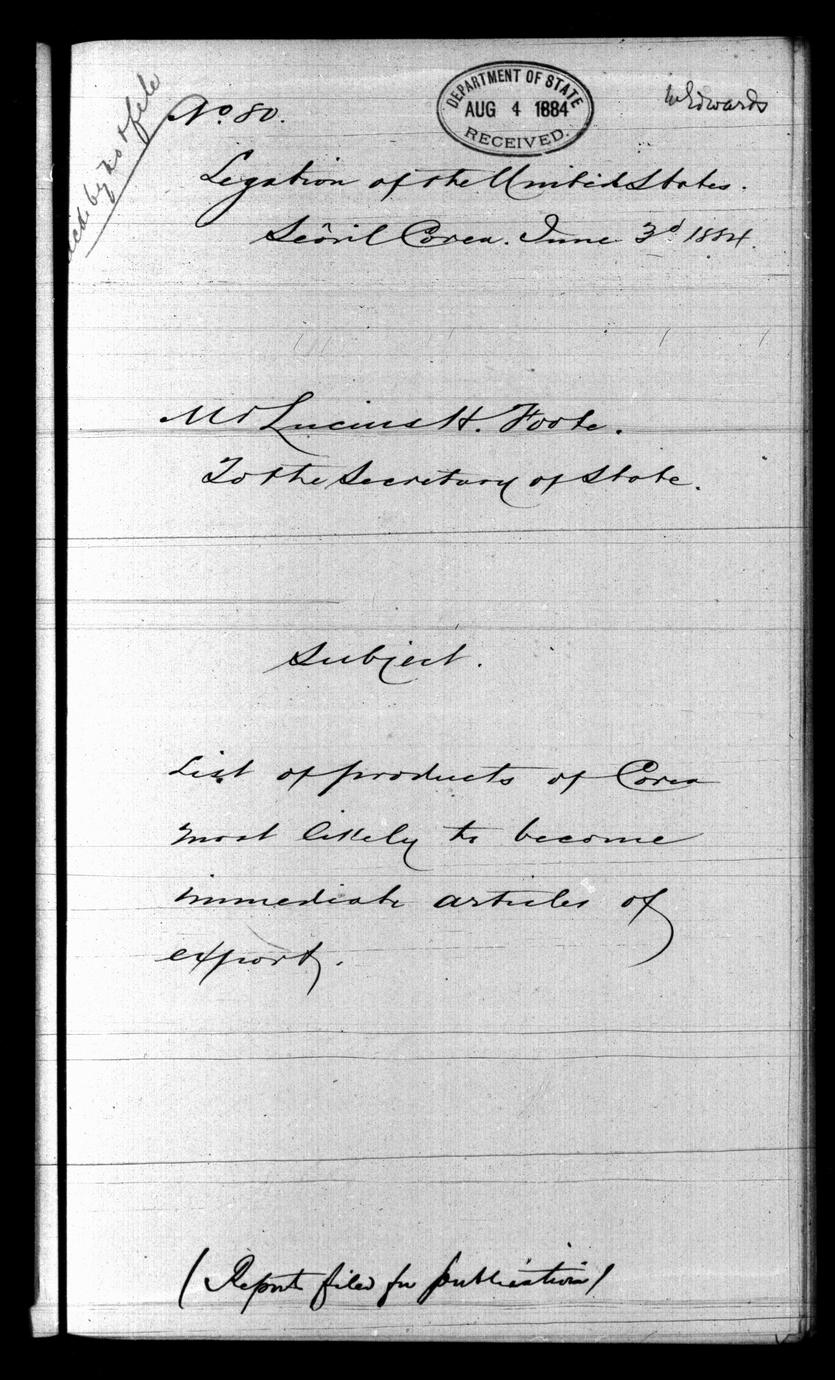 DEPARTMENT OF STATE
AUG 4 1884
RECEIVED.
Edwards
No. 80.
Legation of the United States.
Seöul Corea. June 3d 1884.
Mr Lucius H. Foote.
To the Secretary of State.
Subject.
List of products of Corea
most likely to become
immediate articles of
export.
(Report filed for publication)